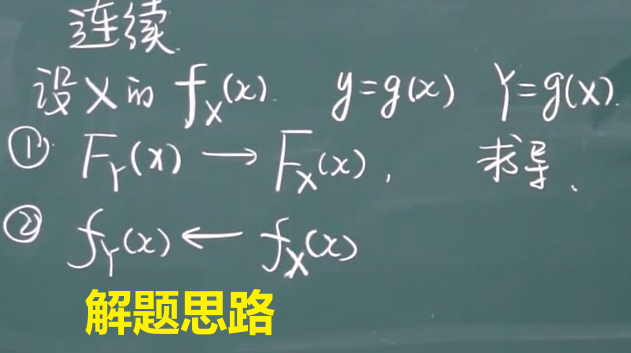 连续.
设X的 f_X(x). y=g(x) Y=g(X).
① F_Y(x) → F_X(x), 求导、
② f_Y(x) ← f_X(x)
解题思路